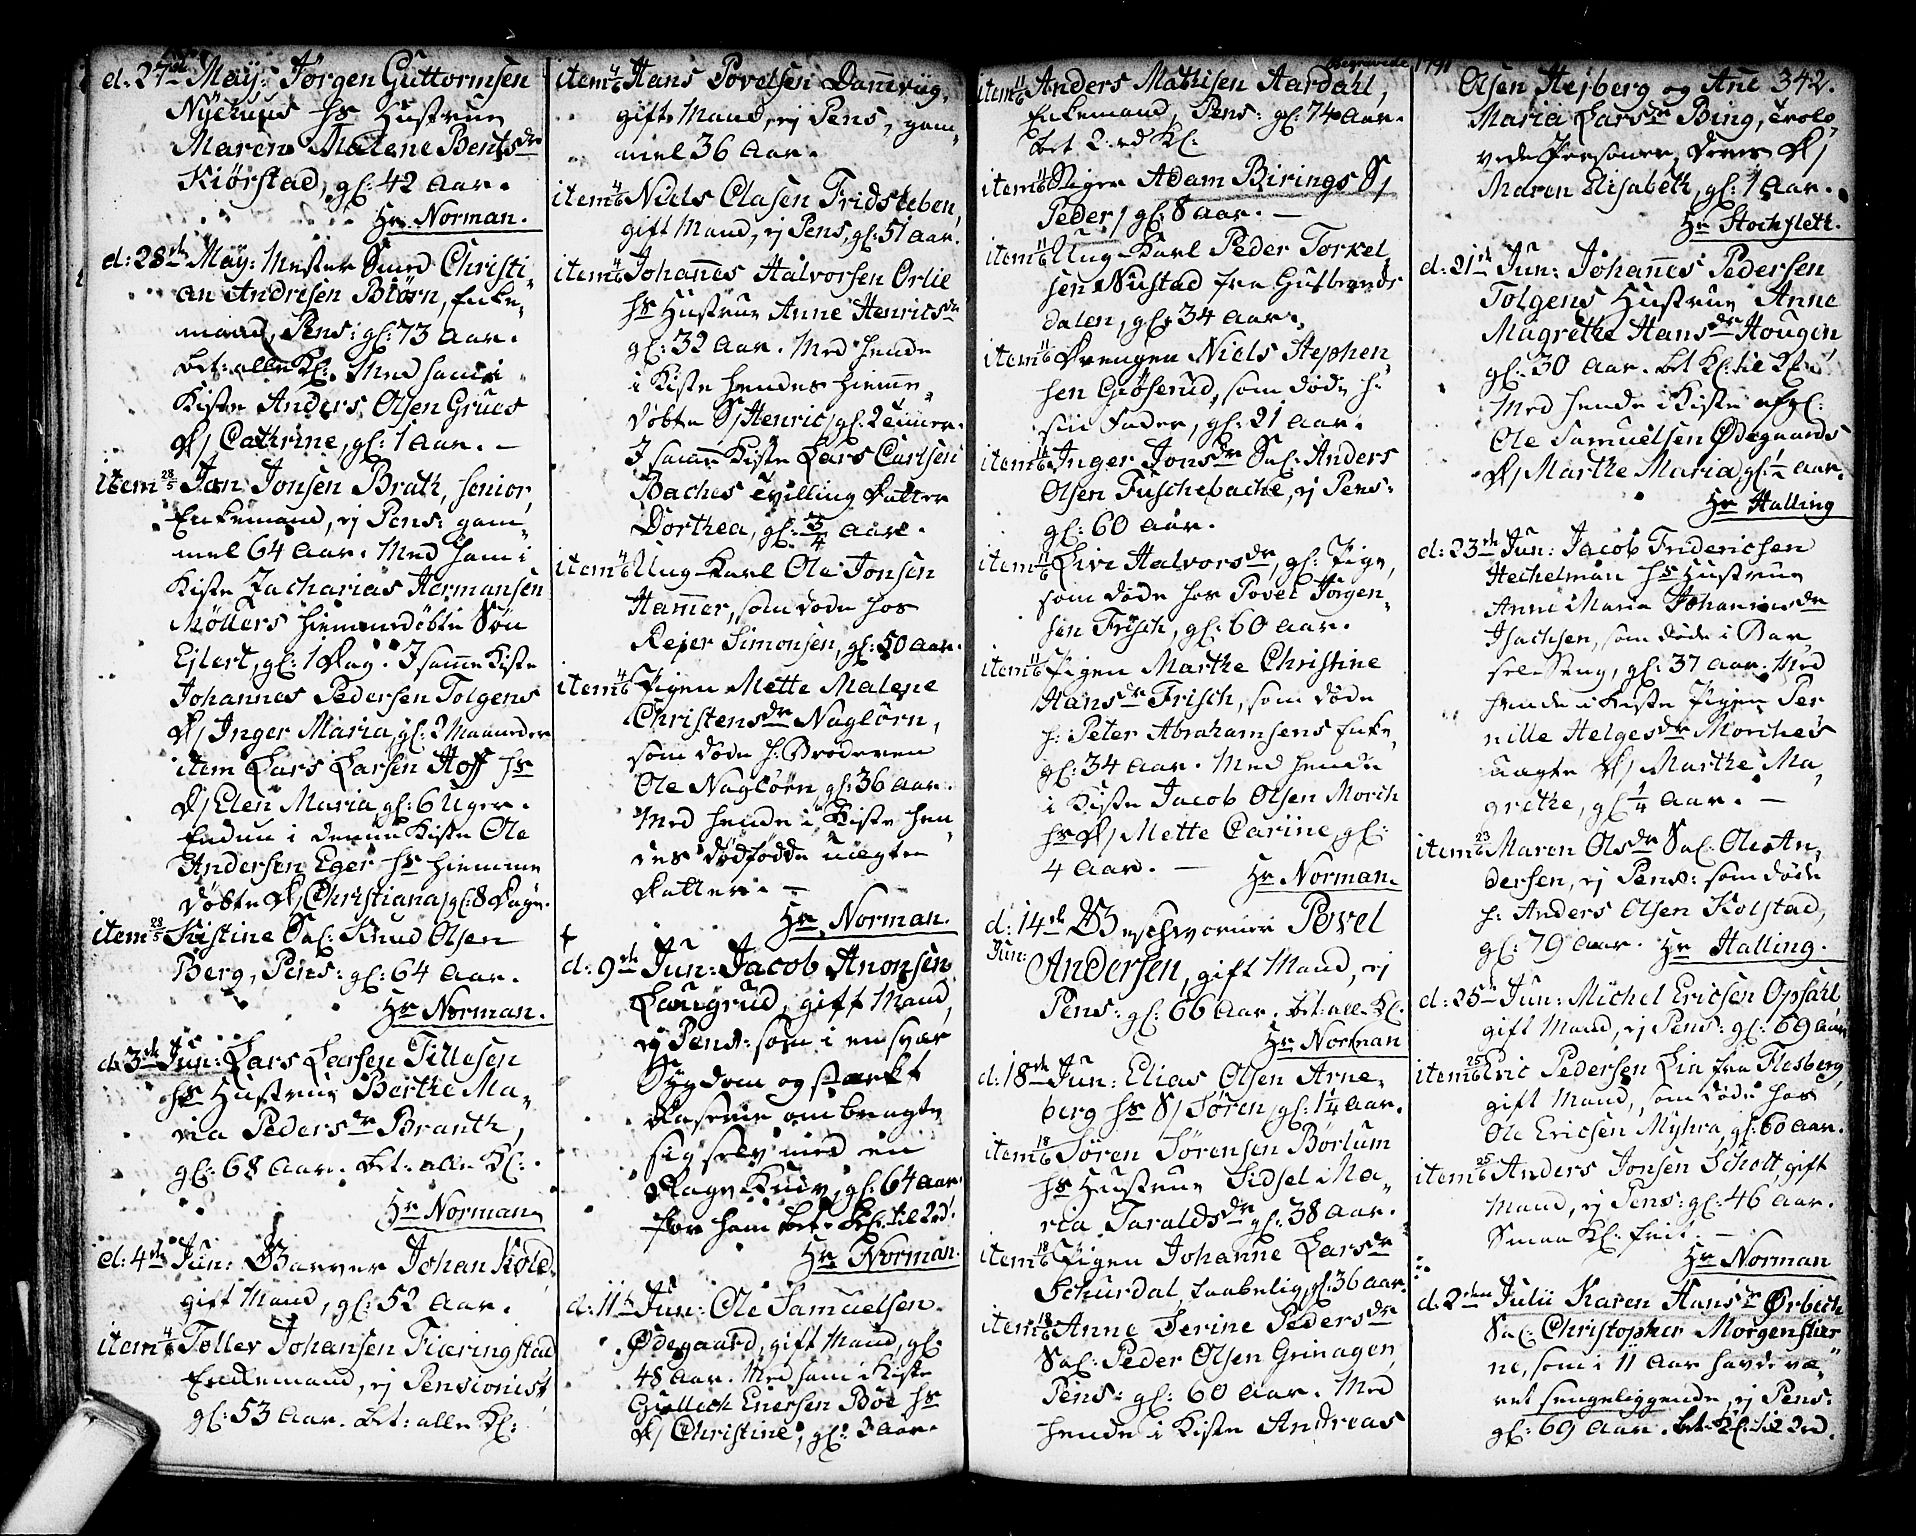 d: 27de May: Jørgen Guttormsen
Nyehuus hs Hustrue
Maren Malene Bentsdr
Kiørstad, gl: 42 Aar.
Hr Norman.
d: 28de May: Mester Smed Christi-
an Andresen Biørn, Enke-
mand, Pens: gl: 73 Aar.
bet: alle Kl: Med ham i
Kiste Anders Olsen Grues
D/ Cathrine, gl: 1 Aar. –
item 28/5 Jan Jonsen Brath, senior,
Enkemand, ej Pens: gam-
mel 64 Aar. Med ham i
Kiste Zacharias Hermansen
Møllers hiemmedøbte Søn
Ejlert, gl: 1 Dag. I samme Kiste
Johannes Pedersen Tolgens
D/ Inger Maria, gl: 2 Maaneder
item Lars Larsen Hoff hs
D/ Elen Maria gl: 6 Uger.
Endnu i denne Kiste Ole
Andersen Eger hs hiemme
døbte D/ Christiana, gl: 8 Dage.
item 28/5 Kistine Sal: Knud Olsen
Berg, Pens: gl: 64 Aar.
Hr Norman.
d: 3de Jun: Lars Larsen Tillesen
hs Hustrue Berthe Ma-
ria Pedersdr Branth,
gl: 68 Aar. bet: alle Kl:
Hr Norman
d: 4de Jun: Garver Johan Kold
gift Mand, gl: 52 Aar.
item 4/6 Toller Johansen Fiæringstad
Enkemand, ej Pensionist
gl: 53 Aar. bet: alle Kl:
item 4/6 Hans Povelsen Dannevig,
gift Mand, ej Pens, gam-
mel 36 Aar.
item 4/6 Niels Clasen Fridsleben,
gift Mand, ej Pens, gl: 51 Aar.
item 4/6 Johannes Halvorsen Orlie
hs Hustrue Anne Henricsdr
gl: 32 Aar. Med hende
i Kiste hendes hiemme-
døbte S/ Henric, gl: 2 timer.
I samme Kiste Lars Carlsen
Baches tvilling Datter
Dorthea, gl: 3/4 Aar.
item 4/6 Ung Karl Ole Jonsen
Hammer, som døde hos
Rejer Simonsen, gl: 50 Aar.
item 4/6 Pigen Mette Malene
Christensdr Nagløren,
som døde h: Broderen
Ole Nagløren, gl: 36 Aar.
Med hende i Kiste hen-
des dødfødde uægte
Datter. –
Hr Norman.
d: 9de Jun: Jacob Anonsen
Laugrud, gift Mand,
ej Pens: som i en svær
Sygdom og stærkt
Raserie ombragte
sig selv med en
Dags Kniv, gl: 64 Aar.
for ham bet: Kl: til 2rd:
Hr Norman.
d: 11te Jun: Ole Samuelsen
Ødegaard, gift Mand, gl:
48 Aar. Med ham i Kiste
Gullech Enersen Bøe hs
D/ Christine, gl: 3 Aar.
Begravede 1791
item 11/6 Anders Mathisen Aardahl,
Enkemand, Pens: gl: 74 Aar.
bet 2rd Kl:
item 11/6 Stiger Adam Birings S/
Peder, gl: 8 Aar. –
item 11/6 Ung Karl Peder Torkel-
sen Nustad fra Gulbrands
dalen, gl: 34 Aar.
item 11/6 Drengen Niels Stephen
sen Giøserud, som døde h:
sin Fader, gl: 21 Aar.
item 11/6 Inger Jonsdr Sal: Anders
Olsen Fuschebache, ej Pens:
gl: 60 Aar.
item 11/6 Live Halvorsdr, gl: Pige,
som døde hos Povel Jørgen-
sen Frisch, gl: 60 Aar.
item 11/6 Pigen Marthe Christine
Hansdr Frisch, som døde
h: Peter Abrahamsens Enke,
gl: 34 Aar. Med hende
i Kiste Jacob Olsen Morch
hs D/ Mette Carine, gl:
4 Aar. –
Hr Norman.
d: 14de Jun: Geschworner Povel
Andersen, gift Mand, ej
Pens: gl: 66 Aar. bet: alle Kl:
Hr Norman
d: 18de Jun: Elias Olsen Arne-
berg hs S/ Søren, gl: 1 1/4 Aar.
item 18/6 Søren Sørensen Børtum
hs Hustrue Sidsel Ma-
ria Taraldsdr gl: 38 Aar.
item 18/6 Pigen Johanne Larsdr
Schurdal, taabelig, gl: 36 Aar.
item 18/6 Anne Serine Pedersdr
Sal: Peder Olsen Grinagen,
Pens: gl: 60 Aar. Med
hende i Kiste Andreas
342.
Olsen Hejberg og Ane
Maria Larsdr Bing, trolo-
vede Personer, deres D/
Maren Elisabeth, gl: 1 Aar.
Hr Stochfleth.
d: 21de Jun: Johannes Pedersen
Tolgens Hustrue Anne
Magrethe Hansdr Hougen
gl: 30 Aar. bet Kl: til
Med hende i Kiste afgl:
Ole Samuelsen Ødegaards
D/ Marthe Maria, gl: 1/2 Aar.
Hr Halling
d: 23de Jun: Jacob Friderichsen
Hechelman hs Hustrue
Anne Maria Johannesdr
Isachsen, som døde i Bar-
sel Seng, gl: 37 Aar. Med
hende i Kiste Pigen Per
nille Helgesdr Morches
uægte D/ Marthe Ma-
grethe, gl: 1/4 Aar. –
item 23/6 Maren Olsdr Sal: Ole An-
dersen, ej Pens: som døde
h: Anders Olsen Kolstad,
gl: 79 Aar. Hr Halling.
d: 25de Jun: Michel Ericsen Opsahl,
gift Mand, ej Pens: gl: 69 Aar
item 25/6 Eric Pedersen Lia fra Flesberg,
gift Mand, som døde hos
Ole Ericsen Myhra, gl: 60 Aar.
item 25/6 Anders Jonsen Schott, gift
Mand, ej Pens: gl: 46 Aar.
Smaa Kl: frit. –
Hr Norman
d: 2den Julii Karen Hansdr Ørbech
Sal: Christopher Morgenstier
ne, som i 11 Aar havde væ-
ret sengeliggende, ej Pens:
gl: 69 Aar. bet Kl: til 2rd.